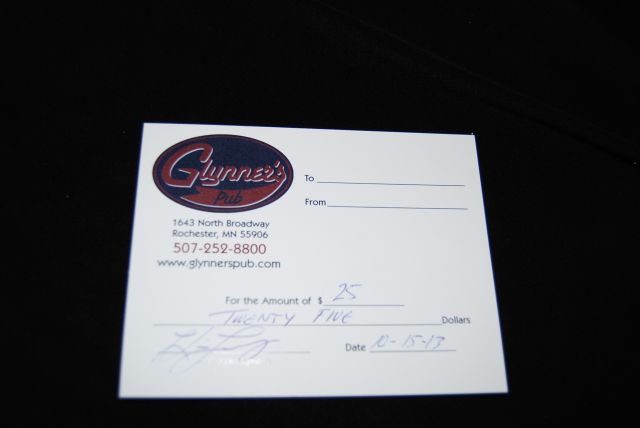 Glynner's
Pub
1643 North Broadway
Rochester, MN 55906
507-252-8800
www.glynnerspub.com
To
From
For the Amount of $ 25
TWENTY FIVE Dollars
Date 10-15-13